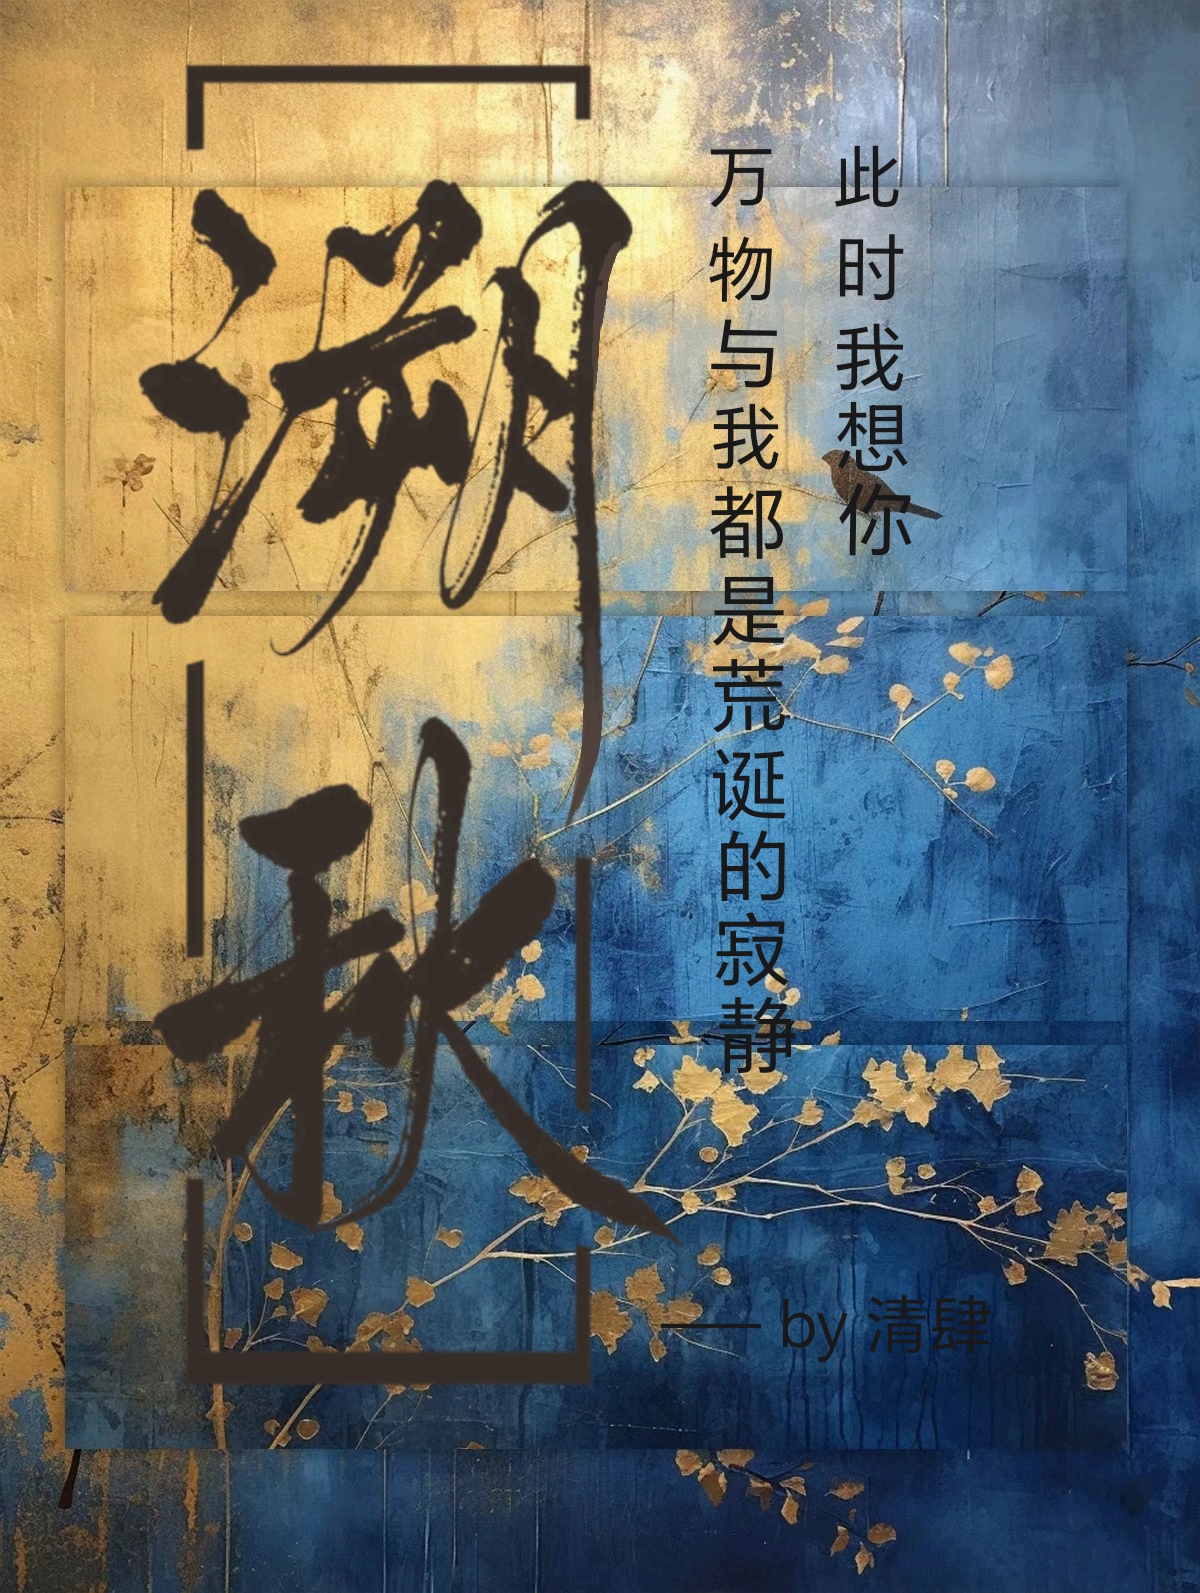 溯秋
此时我想你
万物与我都是荒诞的寂静
—— by 清肆